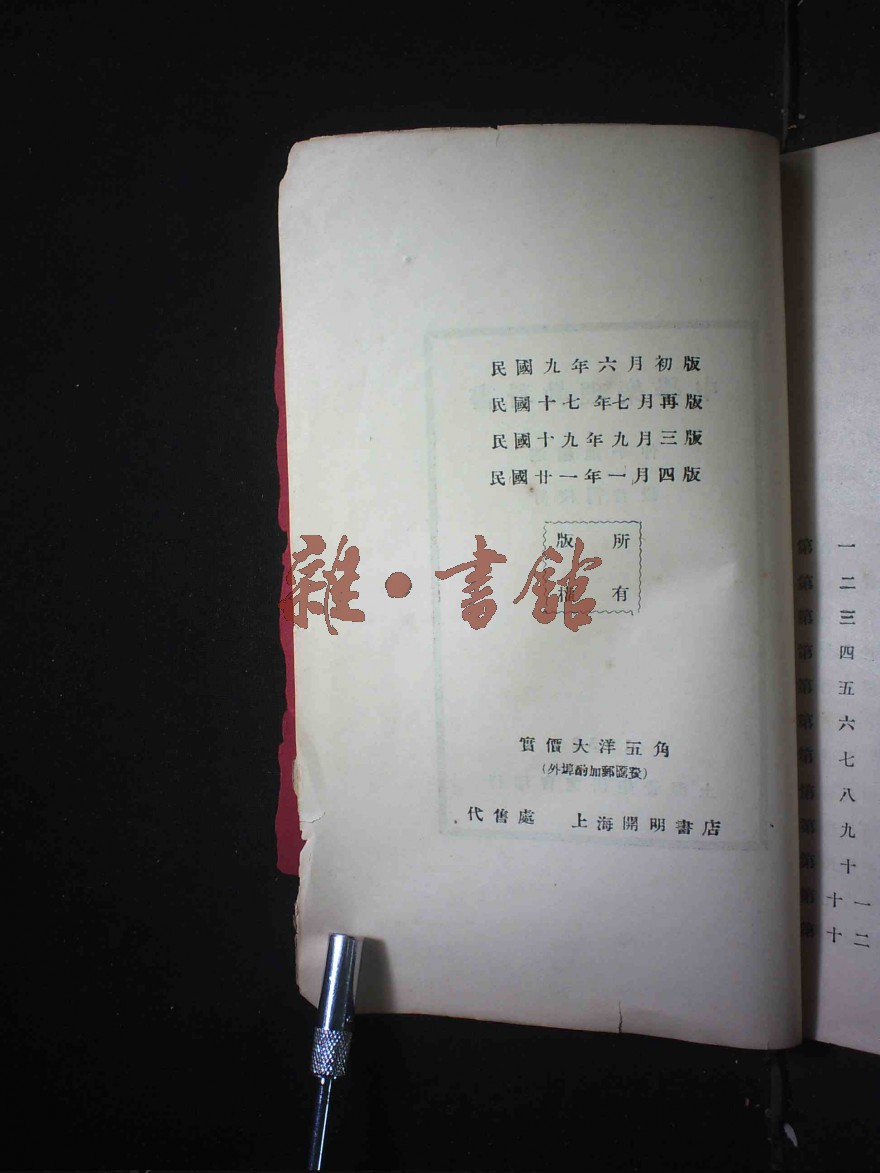 民國九年六月初版
民國十七年七月再版
民國十九年九月三版
民國廿一年一月四版
版 所
權 有
雜·書館
實價大洋五角
(外埠酌加郵匯費)
代售處 上海開明書店
第一
第二
第三
第四
第五
第六
第七
第八
第九
第十
第十一
第十二